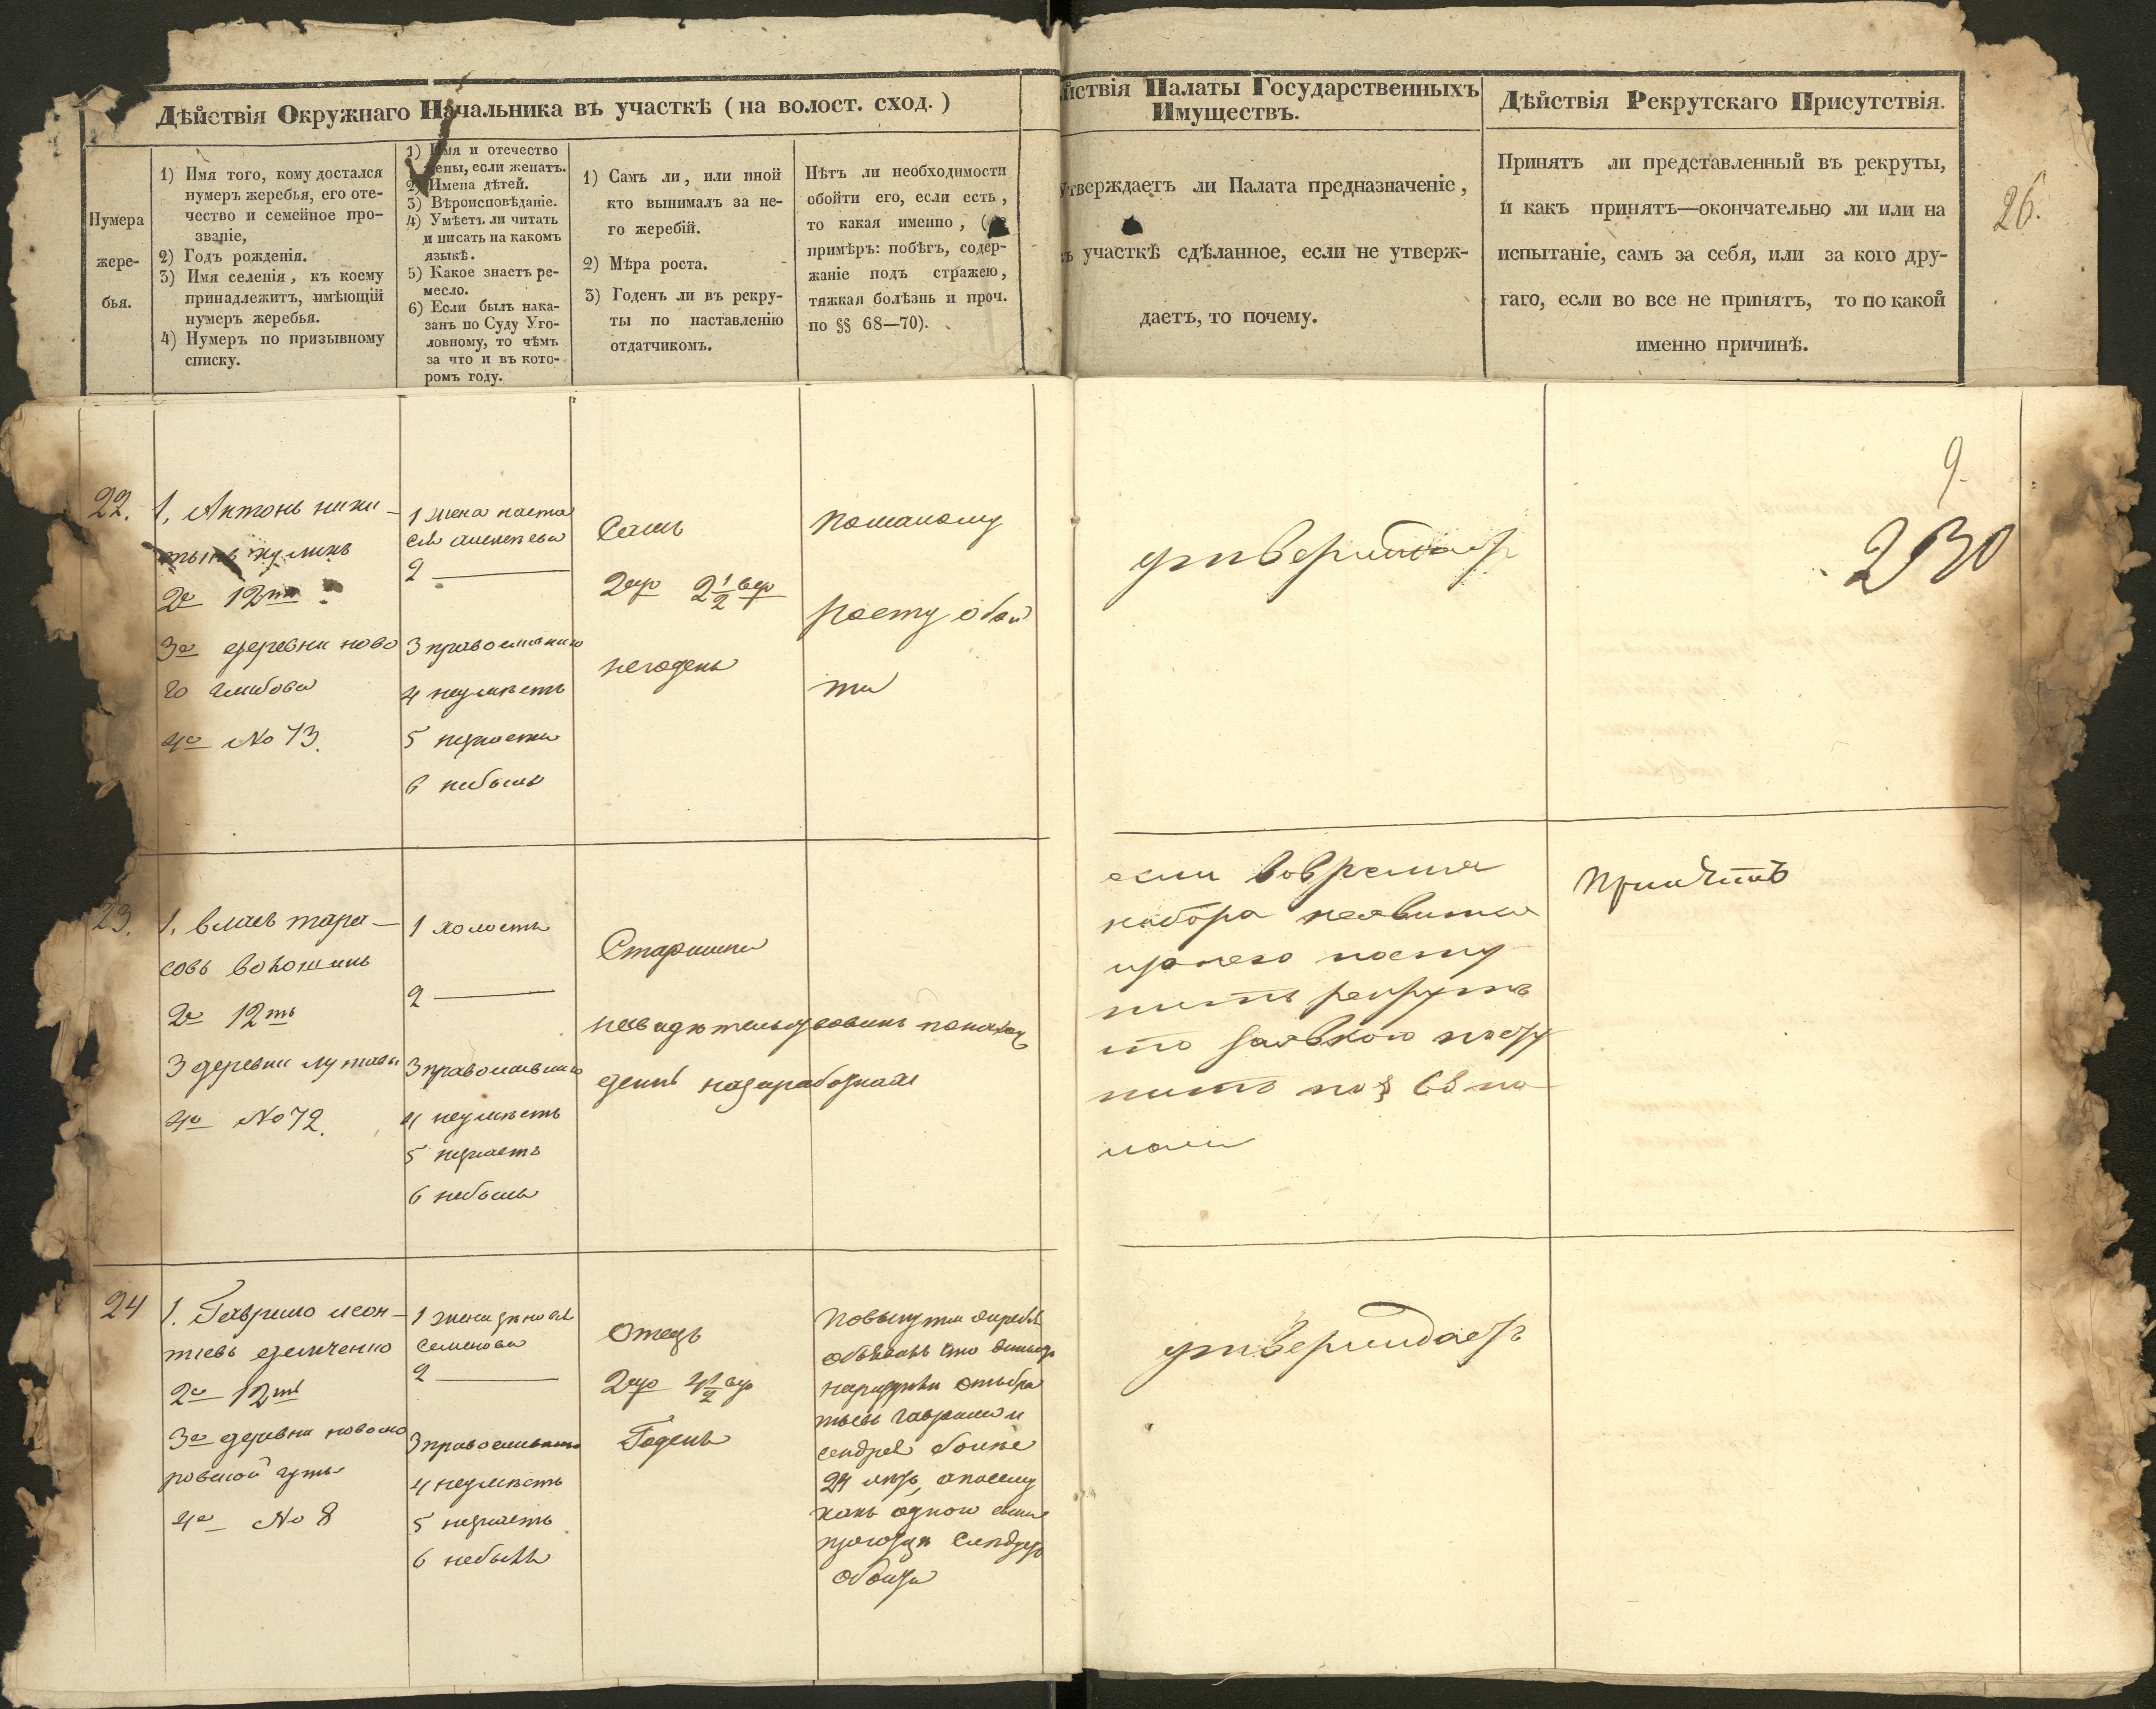 Дѣйствія Окружнаго Начальника въ участкѣ (на волост. сход.)
Нумера
жере-
бья.
1) Имя того, кому достался
нумеръ жеребья, его оте-
чество и семейное про-
званіе,
2) Годъ рожденія.
3) Имя селенія, къ коему
принадлежитъ, имѣющій
нумеръ жеребья.
4) Нумеръ по призывному
списку.
1) Имя и отечество
жены, если женатъ.
2) Имена дѣтей.
3) Вѣроисповѣданіе.
4) Умѣетъ ли читать
и писать на какомъ
языкѣ.
5) Какое знаетъ ре-
месло.
6) Если былъ нака-
занъ по Суду Уго-
ловному, то чѣмъ
за что и въ кото-
ромъ году.
1) Самъ ли, или иной
кто вынималъ за не-
го жеребій.
2) Мѣра роста.
3) Годенъ ли въ рекру-
ты по наставленію
отдатчикомъ.
Нѣтъ ли необходимости
обойти его, если есть,
то какая именно, (
примѣръ: побѣгъ, содер-
жаніе подъ стражею,
тяжкая болѣзнь и проч.
по §§ 68—70).
йствія Палаты Государственныхъ
Имуществъ.
Утверждаетъ ли Палата предназначеніе,
участкѣ сдѣланное, если не утверж-
даетъ, то почему.
Дѣйствія Рекрутскаго Присутствія.
Принятъ ли представленный въ рекруты,
и какъ принятъ—окончательно ли или на
испытаніе, самъ за себя, или за кого дру-
гаго, если во все не принятъ, то по какой
именно причинѣ.
26.
9.
230
22.
1. Антонъ ники-
2е 12ть
3е деревни ново
го глибова
4е No 73.
1 жена наста
2 —
3 православнаго
4 неумѣетъ
5 незнаетъ
6 небылъ
Самъ
2ар 2 1/2 вер
негоденъ
помалому
росту обой
ти
утверждаетъ
23.
1. власъ тара-
совъ волошинъ
2е 12ть
3 деревни лутавы
4е No 72.
1 холостъ
2 —
3 православнаго
4 неумѣетъ
5 незнаетъ
6 небылъ
Старшина
несвидѣтельствованъ понахож
дению назаработкахъ
если вовремя
набора неявится
изанего посту
питъ рекрутъ
то заявкою посту
пить по § 68 по
Принятъ
24
1. Гаврило леон-
тіевъ
2е 12ть
3е деревни новомо
ровской гуты
4е No 8
1 жена зиновія
Семенова
2 —
3 православнаго
4 неумѣетъ
5 незнаетъ
6 небылъ
Отецъ
2ар 4 1/2 вер
Годенъ
Повынутіи жеребья
обявилъ что
тьевъ гаврила и
болѣе
24 лѣтъ, апосему
какъ одною
слѣдуетъ
обойти
утверждаетъ